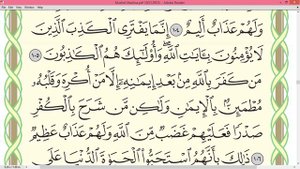 وَلَهُمْ عَذَابٌ أَلِيمٌ ١٠٤ إِنَّمَا يَفْتَرِى ٱلْكَذِبَ ٱلَّذِينَ
لَا يُؤْمِنُونَ بِـَٔايَٰتِ ٱللَّهِ وَأُو۟لَٰٓئِكَ هُمُ ٱلْكَٰذِبُونَ ١٠٥
مَن كَفَرَ بِٱللَّهِ مِنۢ بَعْدِ إِيمَٰنِهِۦٓ إِلَّا مَنْ أُكْرِهَ وَقَلْبُهُۥ
مُطْمَئِنٌّۢ بِٱلْإِيمَٰنِ وَلَٰكِن مَّن شَرَحَ بِٱلْكُفْرِ
صَدْرًا فَعَلَيْهِمْ غَضَبٌ مِّنَ ٱللَّهِ وَلَهُمْ عَذَابٌ عَظِيمٌ
١٠٦ ذَٰلِكَ بِأَنَّهُمُ ٱسْتَحَبُّوا۟ ٱلْحَيَوٰةَ ٱلدُّنْيَا عَلَى